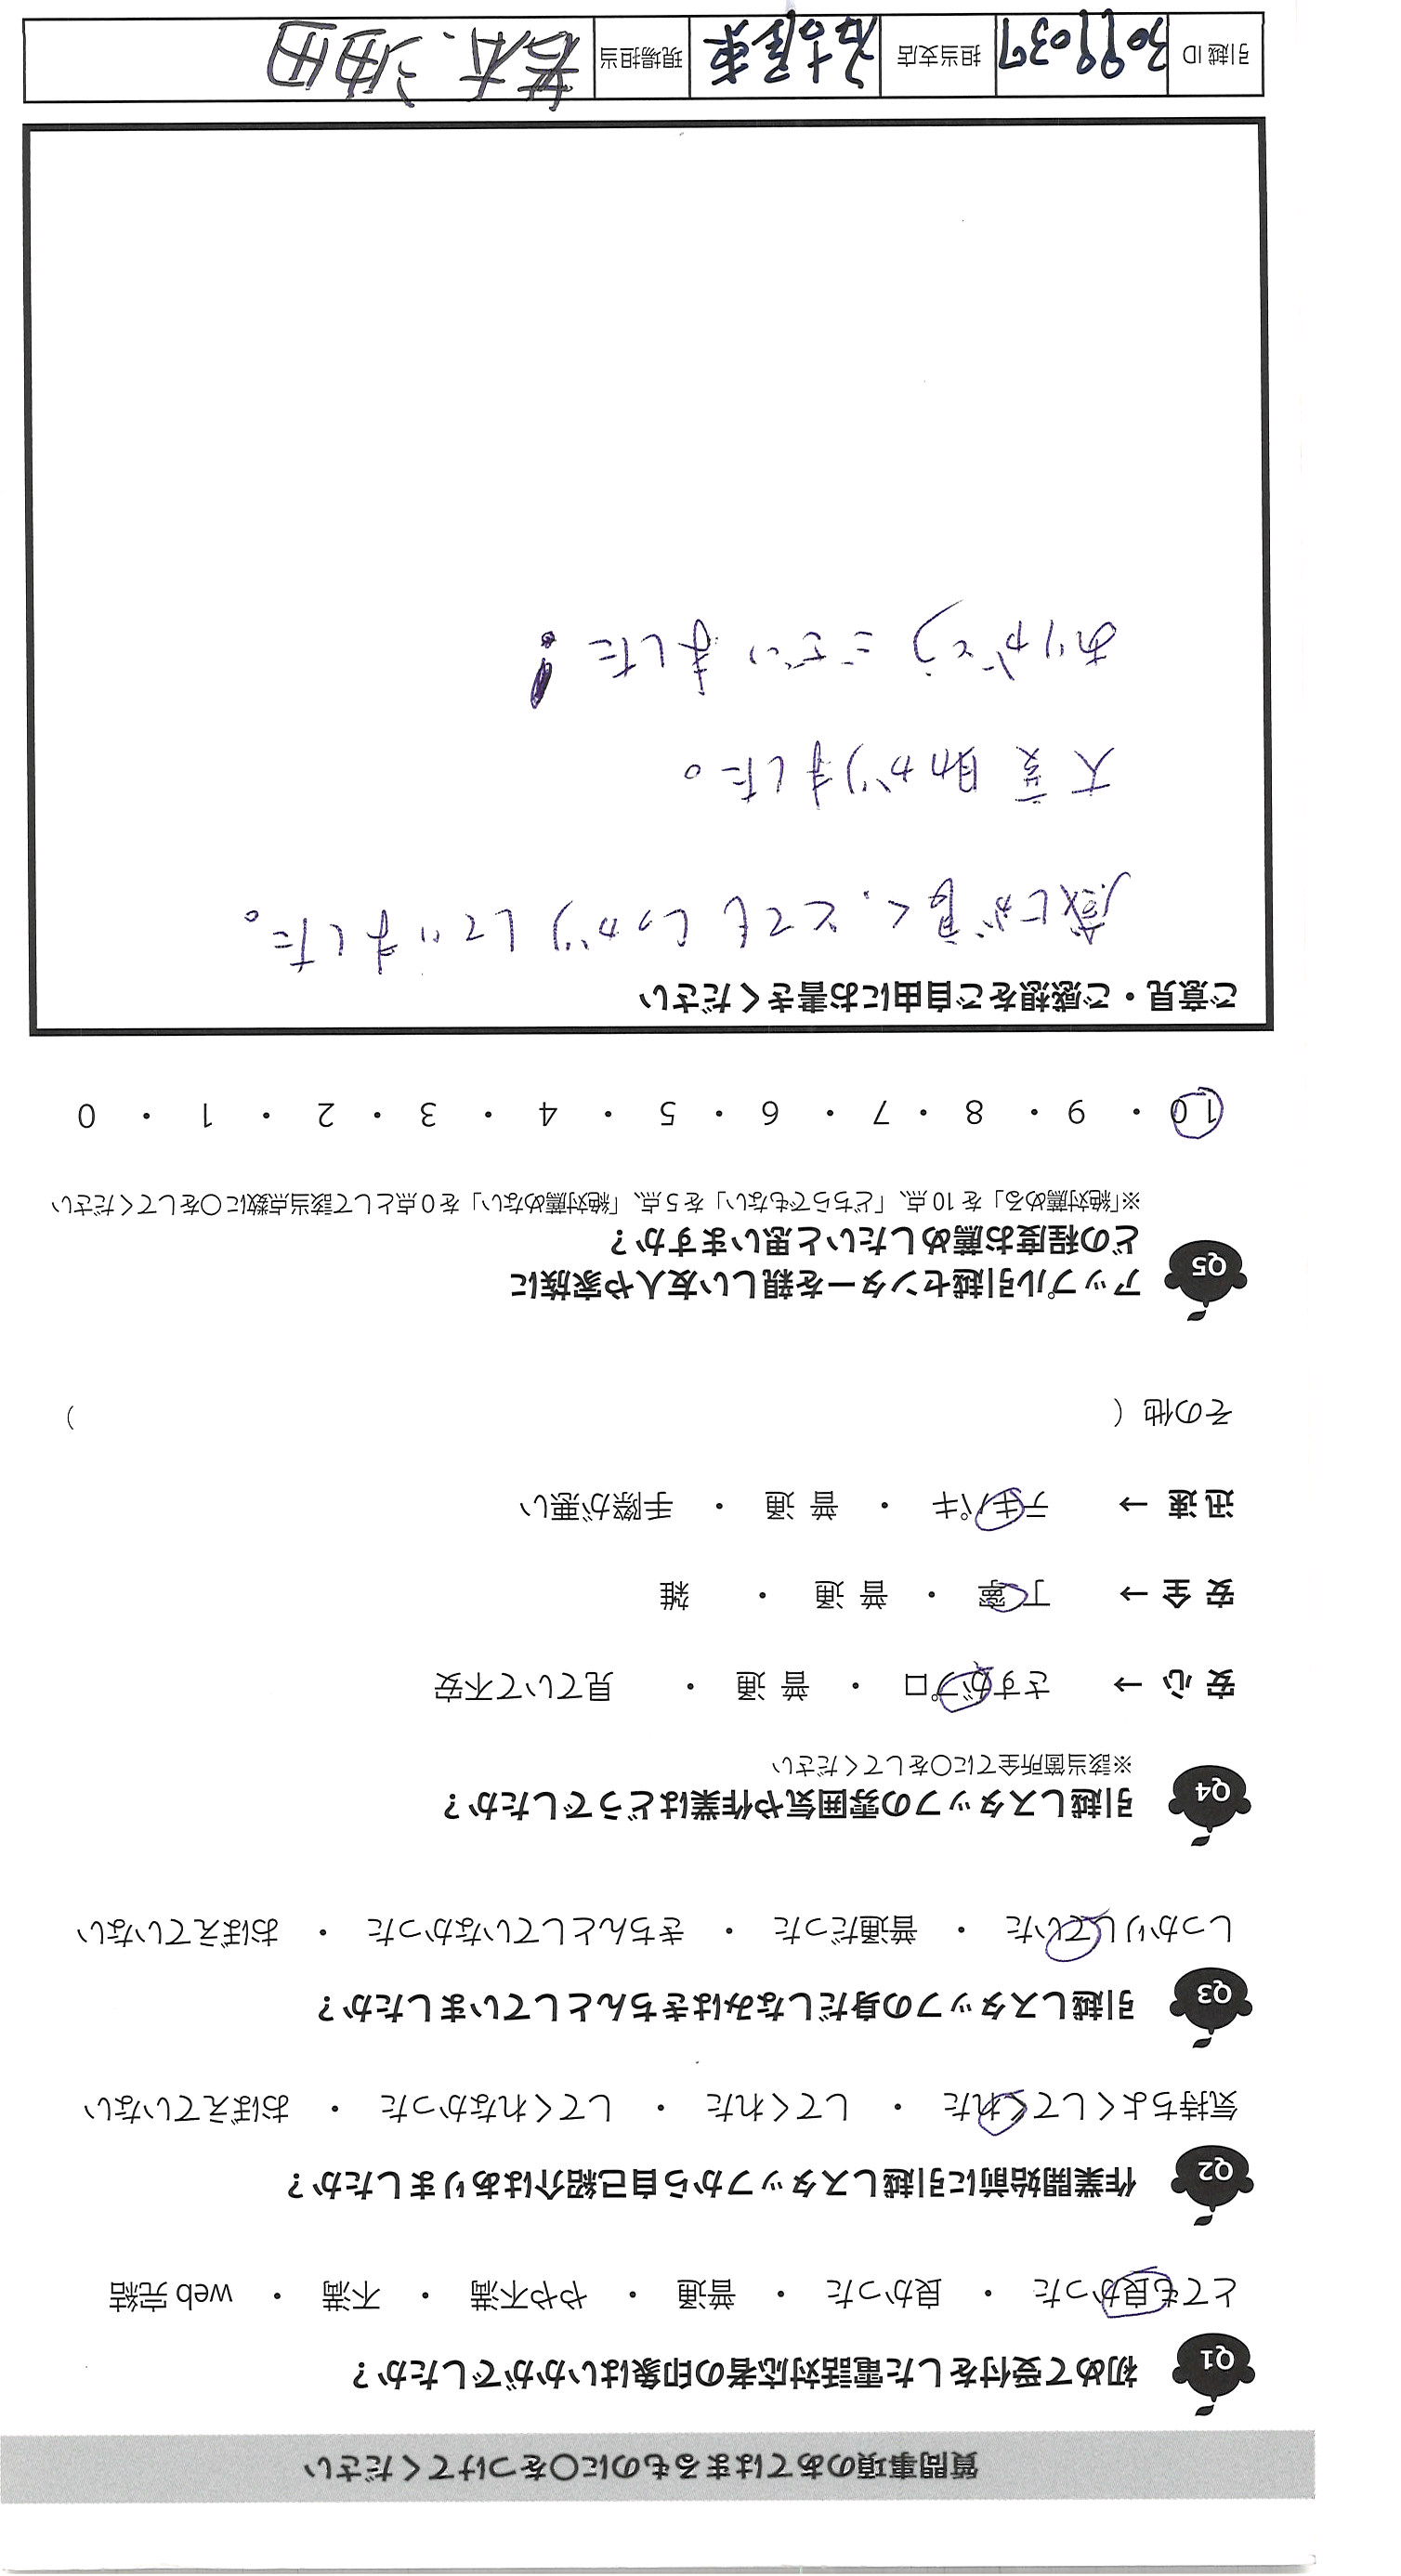 質問事項のあてはまるものに〇をつけてください
Q1 初めて受付をした電話対応者の印象はいかがでしたか？
とても良かった ・ 良かった ・ 普通 ・ やや不満 ・ 不満 ・ web 完結
Q2 作業開始前に引越しスタッフから自己紹介はありましたか？
気持ちよくしてくれた ・ してくれた ・ してくれなかった ・ おぼえていない
Q3 引越しスタッフの身だしなみはきちんとしていましたか？
しっかりしていた ・ 普通だった ・ きちんとしていなかった ・ おぼえていない
Q4 引越しスタッフの雰囲気や作業はどうでしたか？
※該当箇所全てに〇をしてください
安 心 → さすがプロ ・ 普 通 ・ 見ていて不安
安 全 → 丁 寧 ・ 普 通 ・ 雑
迅 速 → テキパキ ・ 普 通 ・ 手際が悪い
その他（ ）
Q5 アップル引越センターを親しい友人や家族に
どの程度お薦めしたいと思いますか？
※「絶対薦める」を 10 点、「どちらでもない」を 5 点、「絶対薦めない」を 0 点として該当点数に〇をしてください
10 ・ 9 ・ 8 ・ 7 ・ 6 ・ 5 ・ 4 ・ 3 ・ 2 ・ 1 ・ 0
ご意見・ご感想をご自由にお書きください
感じが良く、とてもしっかりしていました。
大変助かりました。
ありがとうございました！
引越 ID 3099037 担当支店 名古屋東 現場担当 若本、油田